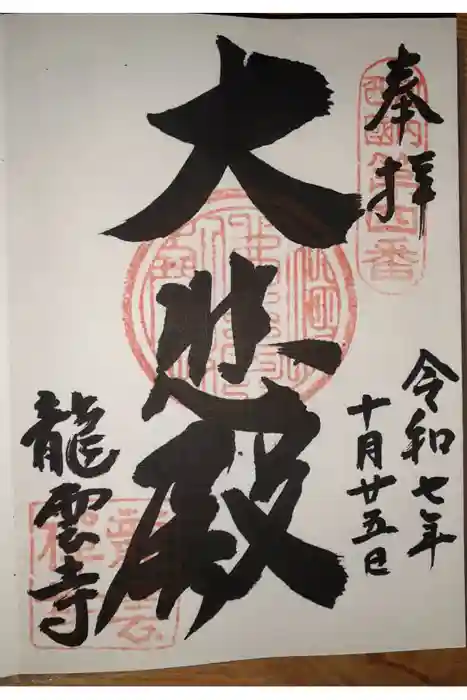 奉拝
令和七年
十月廿五日
大悲殿
龍雲寺
第四番